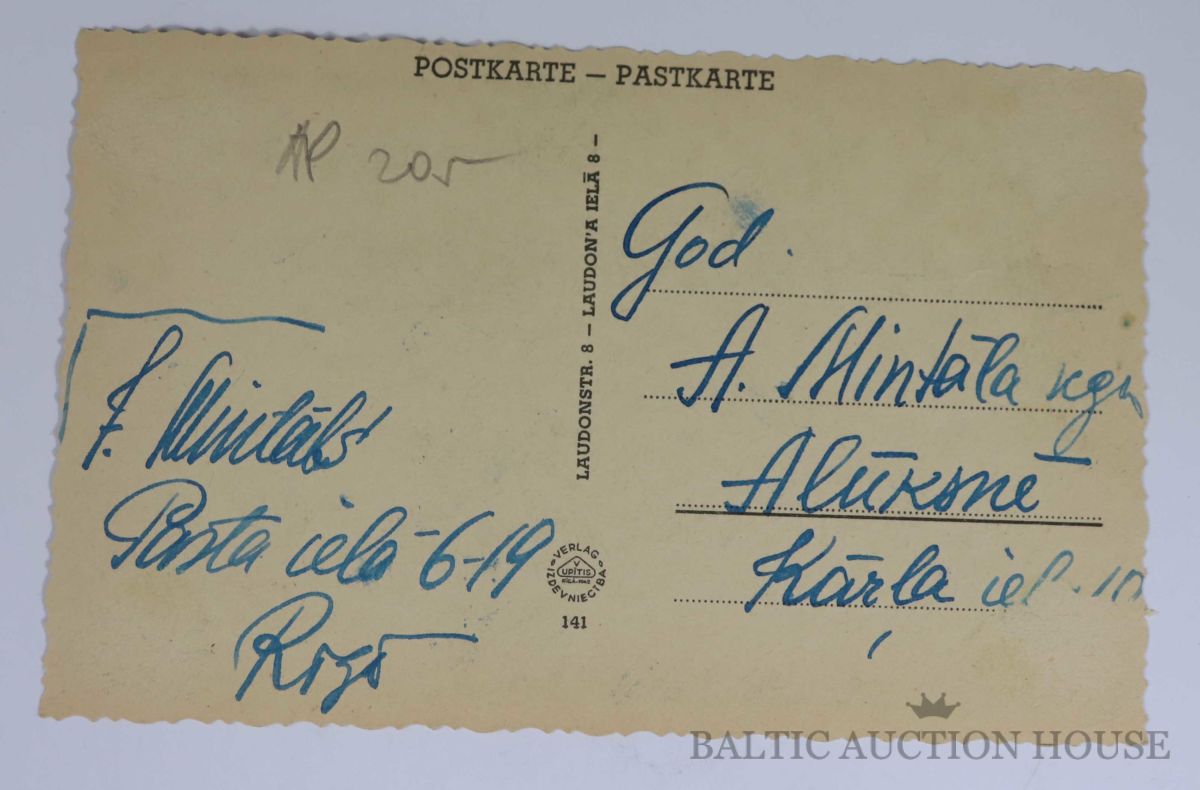 POSTKARTE — PASTKARTE
AP 205
LAUDONSTR. 8 — LAUDON'A IELĀ 8 —
God.
A. Mintāla kgm
Alūksnē
Kārļa iel. 10
F. Mintāls
Pasta ielā 6-19
Rīgā
VERLAG
V
UPĪTIS
RĪGA-1942
IZDEVNIECĪBA
141
BALTIC AUCTION HOUSE